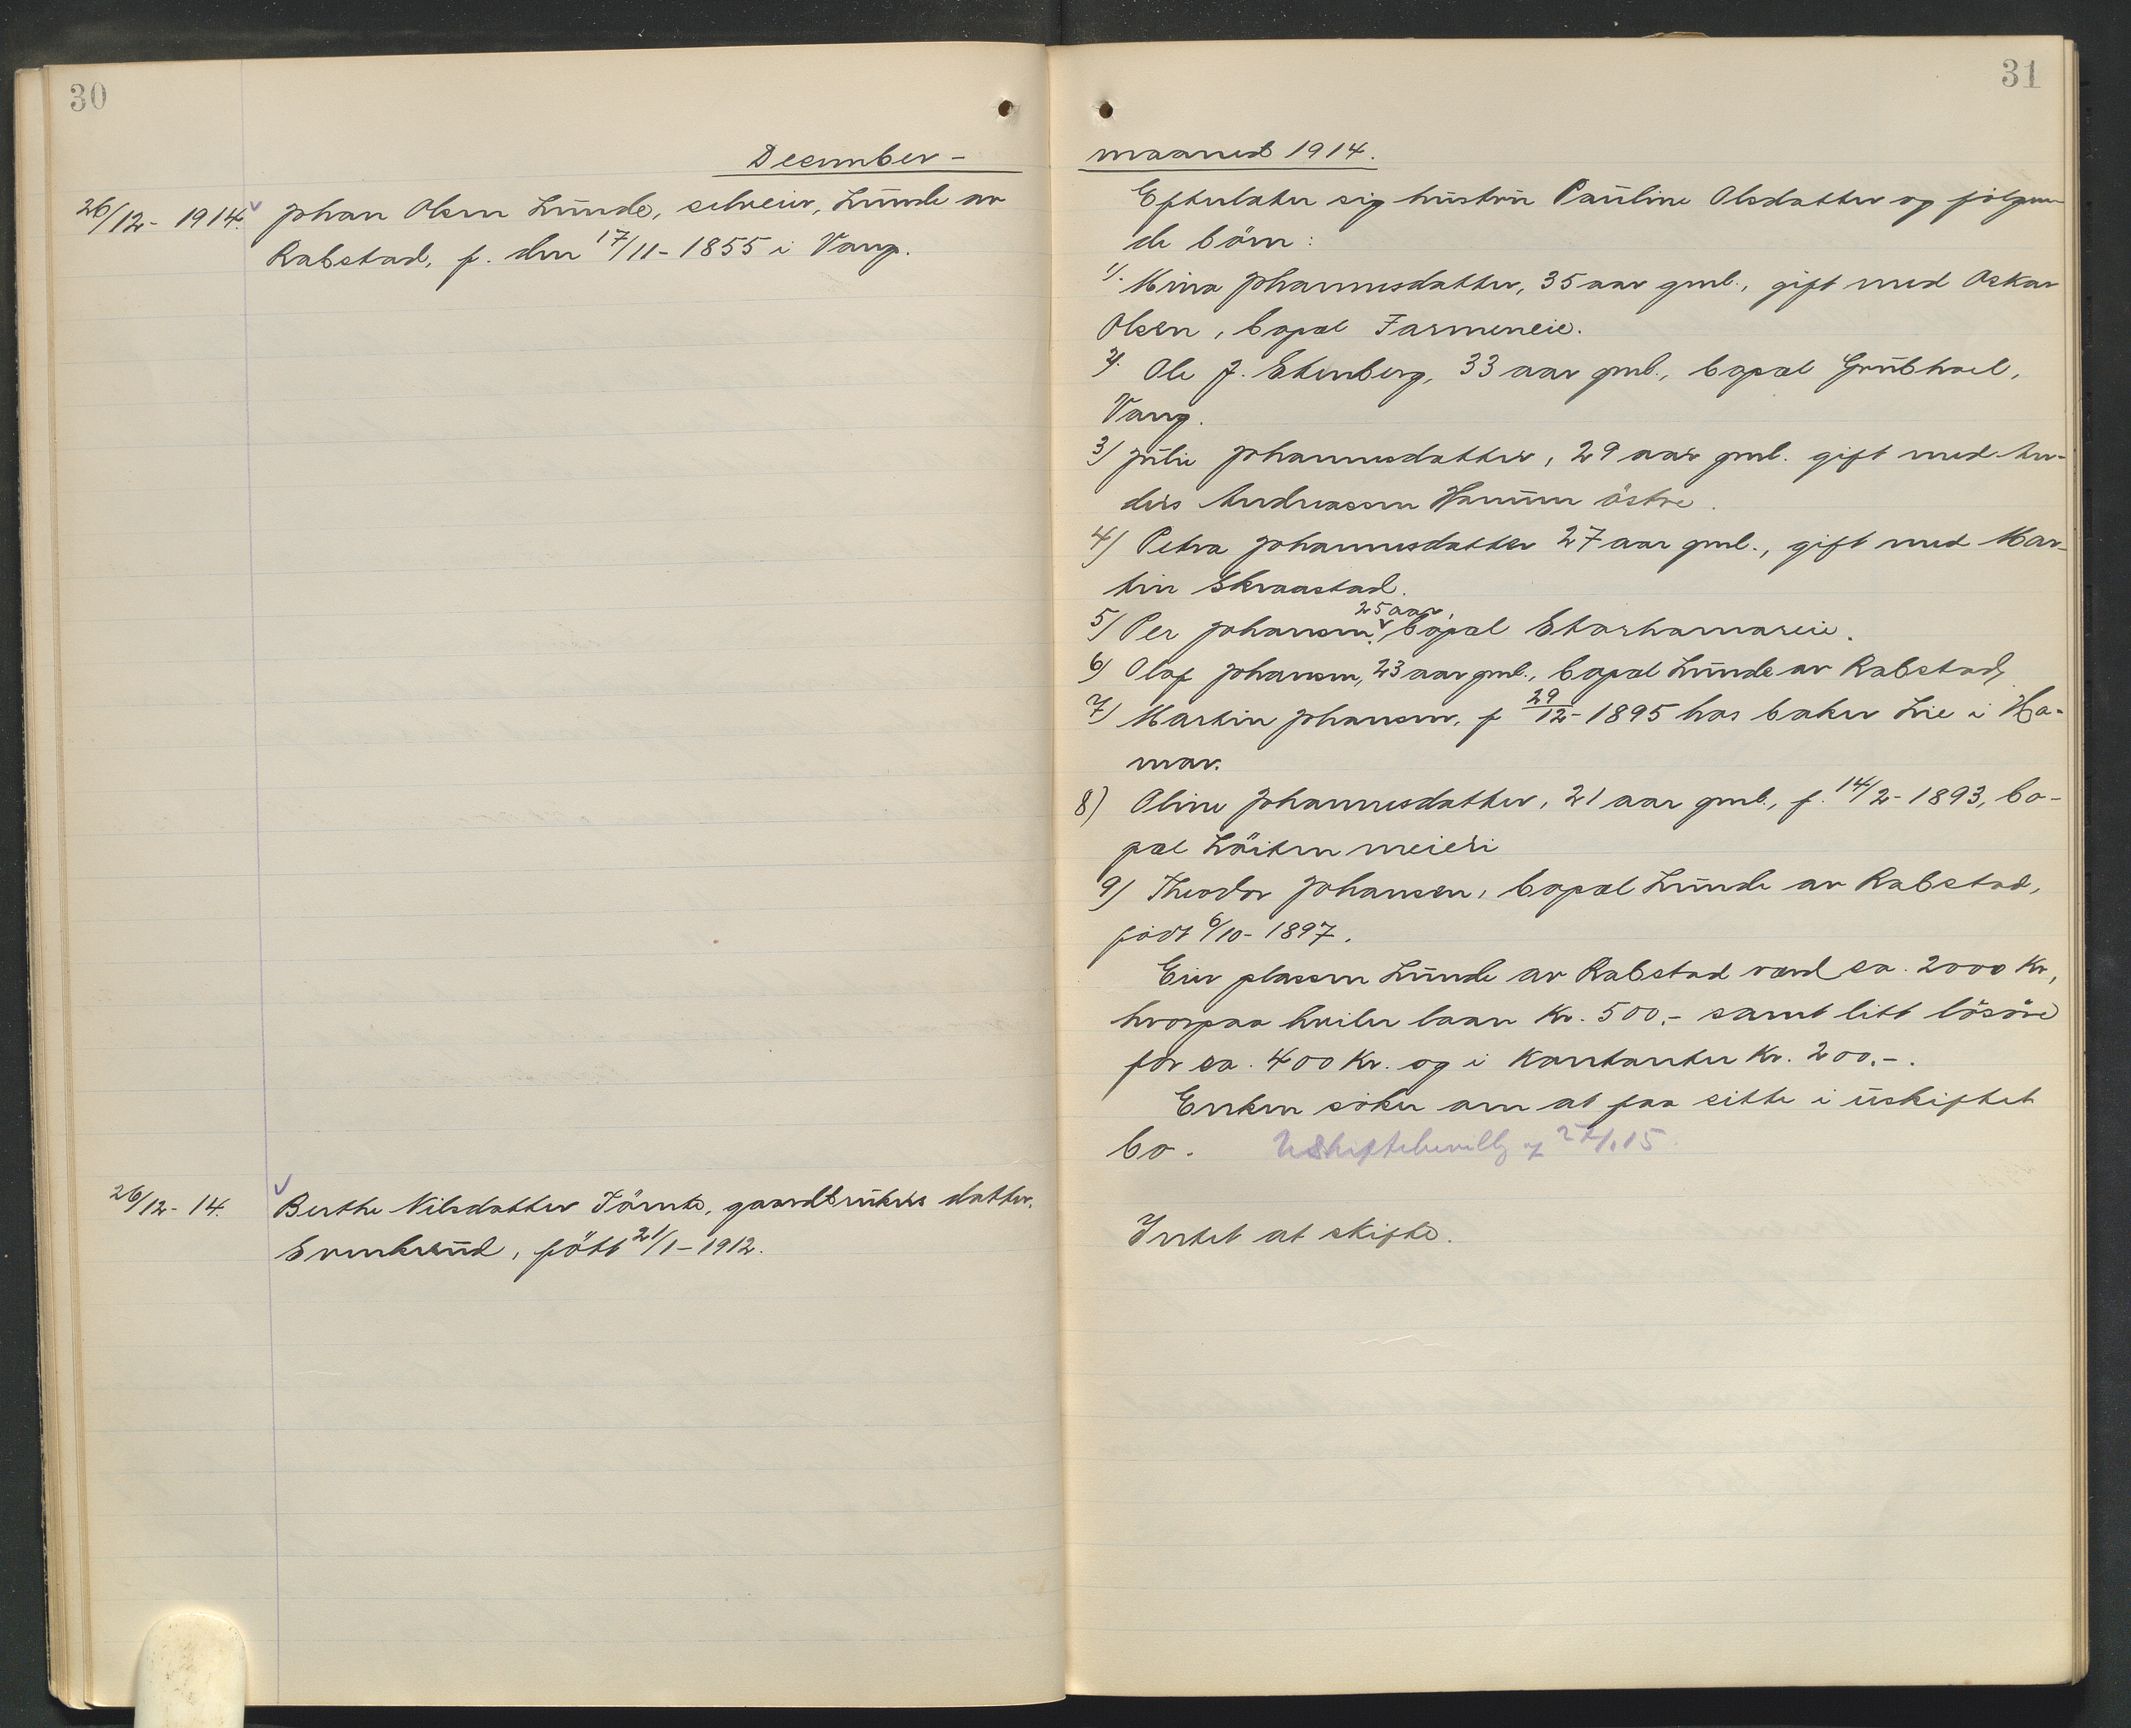 30
December-
26/12- 1914. Johan Olsen Lunde, selveier, Lunde av
Rabstad, f. den 17/11- 1855 i Vang.
26/12- 14. Berthe Nilsdatter Törnte, gaardbrukers datter,
Evenhaud, fött 21/1- 1912.
31
maaned 1914.
Efterlater sig hustru Pauline Olsdatter og følgen-
de börn:
1/. Mina Johannesdatter, 35 aar gml., gift med Oskar
Olsen, bopæl Farmeneie.
2/. Ole J. Stenberg, 33 aar gml., bopæl Grubhoel,
Vang.
3/ Julie Johannesdatter, 29 aar gml. gift med An-
ders Andreassen Hanum östre.
4/ Petra Johannesdatter 27 aar gml., gift med Mar-
tin Skraastad.
5/ Per Johansen, 25 aar, bopæl Storhamareie.
6/ Olaf Johansen, 23 aar gml., bopæl Lunde av Rabstad,
7/ Martin Johansen, f 29/12- 1895 hos baker Lie i Ha-
mar.
8) Oline Johannesdatter, 21 aar gml., f. 14/2- 1893, bo-
pæl Löiten meieri
9/ Theodor Johansen, bopæl Lunde av Rabstad,
född 6/10- 1897.
Eier plassen Lunde av Rabstad værd ca. 2000 Kr,
hvorpaa hviler laan Kr. 500.- samt litt lösöre
for ca. 400 Kr. og i kontanter Kr. 200.-.
Enken söker om at faa sitte i uskiftet
bo. Uskiftebevillg af 27/1 15.
Intet at skifte.